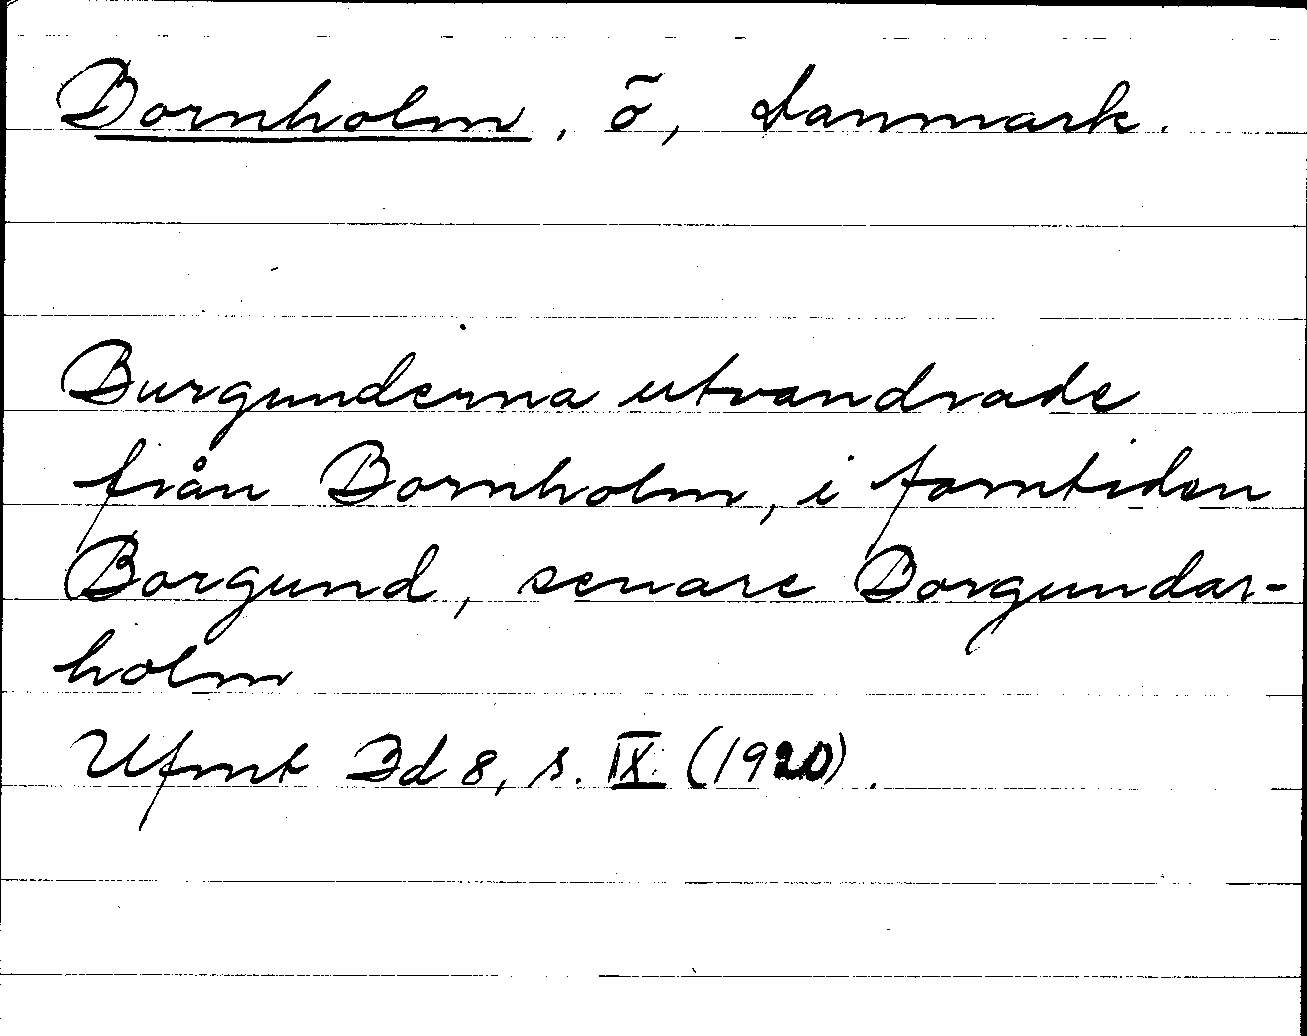 Bornholm, ö, Danmark.
Burgunderna utvandrade
från Bornholm, i forntiden
Borgund, senare Borgundar-
holm
Ufmt Bd 8, s. IX (1920).